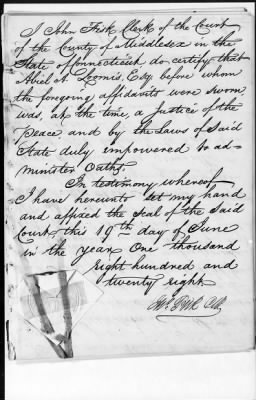 I John Fisk Clerk of the Court
of the County of Middlesex in the
State of Connecticut do certify that
Abiel A. Loomis, Esq. before whom
the foregoing affidavits were sworn,
was, at the time, a Justice of the
Peace, and by the laws of said
State duly empowered to ad-
minister Oaths.
In testimony whereof
I have hereunto set my hand
and affixed the seal of the said
Court this 19th day of June
in the year, One thousand
eight hundred and
twenty eight
Jno. Fisk Clk